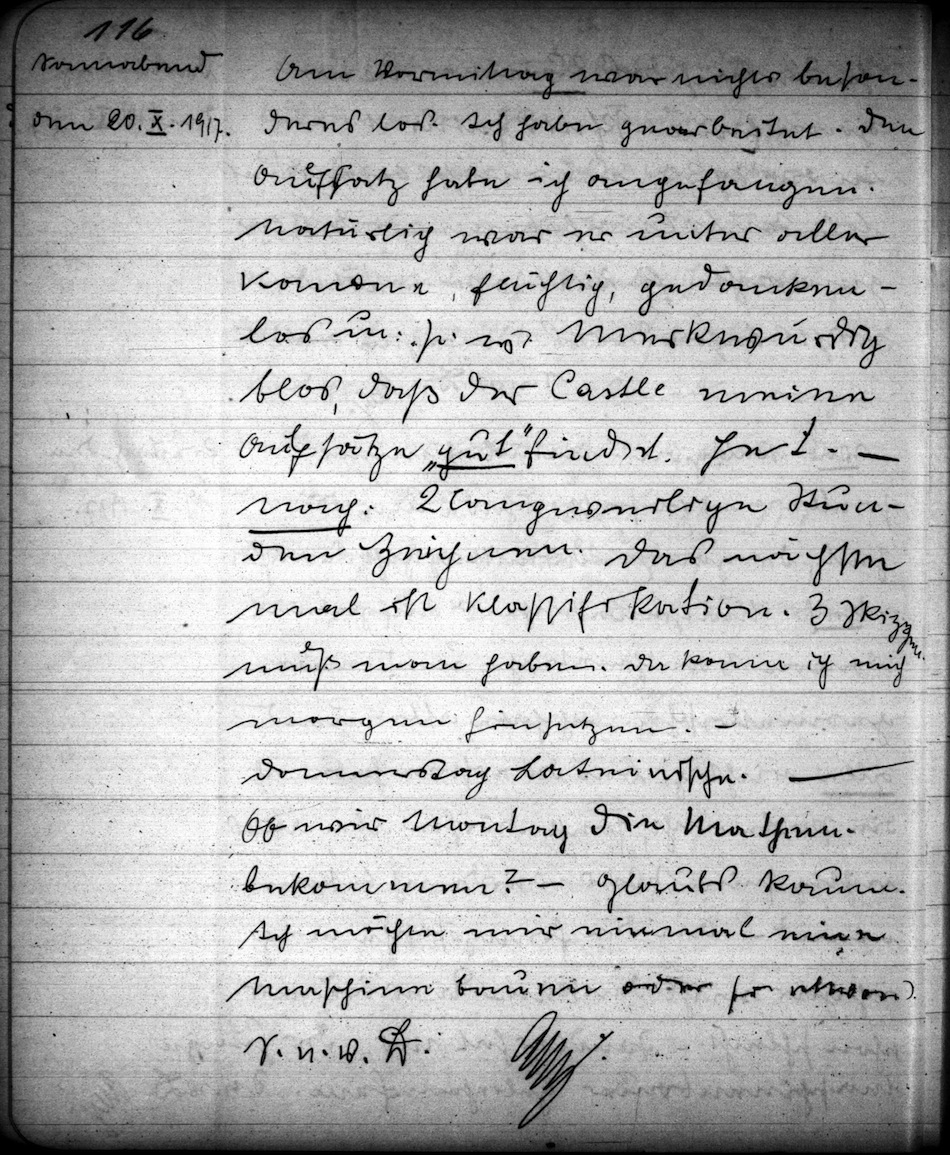 116
Sonnabend
den 20. X. 1917.
Am Vormittag war nichts beson-
deres los. Ich habe gearbeitet. Den
Aufsatz habe ich angefangen.
Natürlich war er unter aller
Kanone, flüchtig, gedanken-
los u. s. w. Merkwürdig
blos, daß der Castle meine
Aufsätze „gut" findet. Hat. —
nach: 2 langweilige Stun-
den Zeichnen. Das nächste
mal ist Klassifikation. 3 Skizzen
muß man haben. Da kann ich mich
morgen hinsetzen. —
Donnerstag Lateinische. —
Ob wir Montag die Mathem.
bekommen? — Glaubs kaum.
Ich möchte mir einmal eine
Maschine bauen oder so etwas.
S. u. w. D.